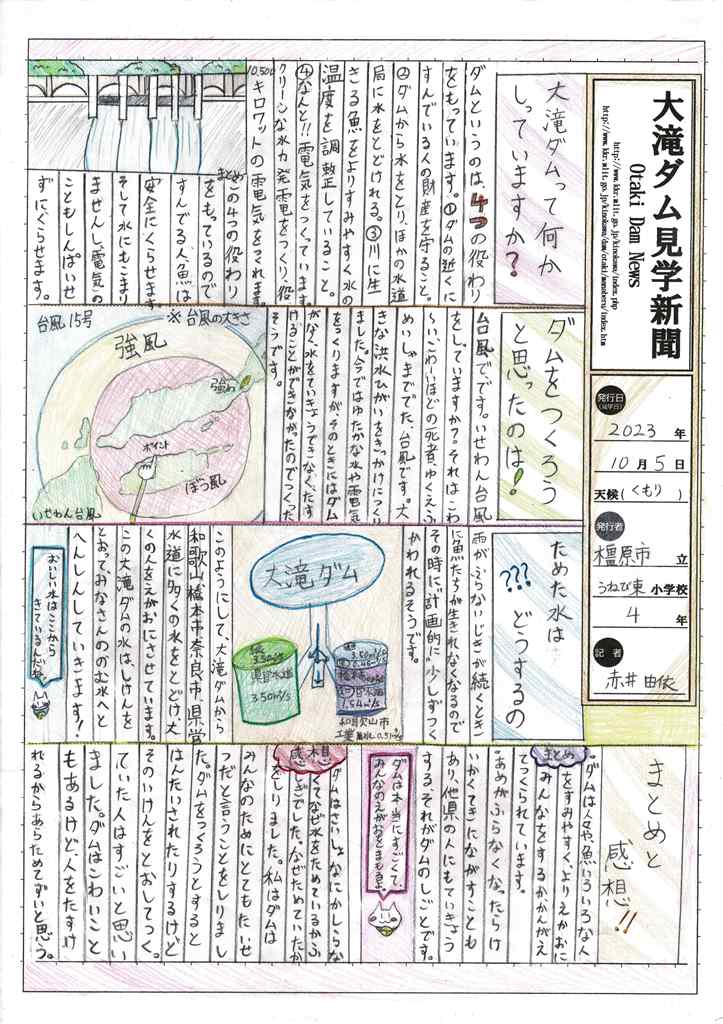 大滝ダム見学新聞
Otaki Dam News
発行日
(見学日)
2023 年
10月5日
天候(くもり)
発行者
橿原市 立
うねび東 小学校
4 年
記者
赤井 由依
大滝ダムって何か
しっていますか?
ダムというのは、4つの役わり
をもっています。①ダムの近くに
すんでいる人の財産を守ること。
②ダムから水をとり、ほかの水道
局に水をとどける。③川に生
きる魚をよりすみやすく水の
温度を調整していること。
④なんと!!電気をつくっています。
クリーンな水力発電をつくり、役
10,500キロワットの電気をつくれます。
まとめこの4つの役わり
をもっているので
すんでる人、魚は
安全にくらせます。
そして水にもこまり
ませんし、電気の
こともしんぱいせ
ずにくらせます。
ダムをつくろう
と思ったのは!
台風でです。いせわん台風
をしていますか?それはこわ
〜い、こわーいほどの死者、ゆくえふ
めいしゃまででた、台風です。大
きな洪水ひがいをきっかけにつくり
ました。今ではゆたかな水や電気
をつくりますが、そのときにはダム
がなく、水をていきょうできなく、たす
けることができなかったのでつくった
そうです。
台風15号
※台風の大きさ
強風
強い
ポイント
ぼう風
いせわん台風
ためた水は
??? どうするの
雨がふらないじきが続くとき
に魚たちが生きれなくなるので
その時に"計画的に"少しずつつ
かわれるそうです。
大滝ダム
3.50m³/s
県営水道
3.50m³/s
橋本市
1.54m³/s
和歌山市
このようにして、大滝ダムから
和歌山、橋本市、奈良市、県営
水道に多くの水をとどけ、大
くの人をえがおにさせています。
この大滝ダムの水は、しけんを
とおってみなさんののむ水へと
へんしんしていきます!
おいしい水はここから
きているんだね
まとめと
感想!!
まとめ
・ダムは人々や魚いろいろな人
をすみやすく、よりえがおに
みんなをするかんがえ
てつくられています。
・あめがふらなくなったらけ
いかくてきにながすことも
あり、他県の人にもていきょう
する、それがダムのしごとです。
ダムは本当にすごくて、
みんなのえがおをまもるよ。
感想
ダムはさいしょなにかしらな
くてなぜ水をためているかふ
しぎでした。なぜためていたか
をしりました。私はダムは
みんなのためにとてもたいせ
つだと言うことをしりまし
た。ダムをつくろうとすると
はんたいされたりするけど
そのいけんをとおしてつく。
ていた人はすごいと思い
ました。ダムはこわいこと
もあるけど、人をたすけ
れるからあらためてすごいと思う。